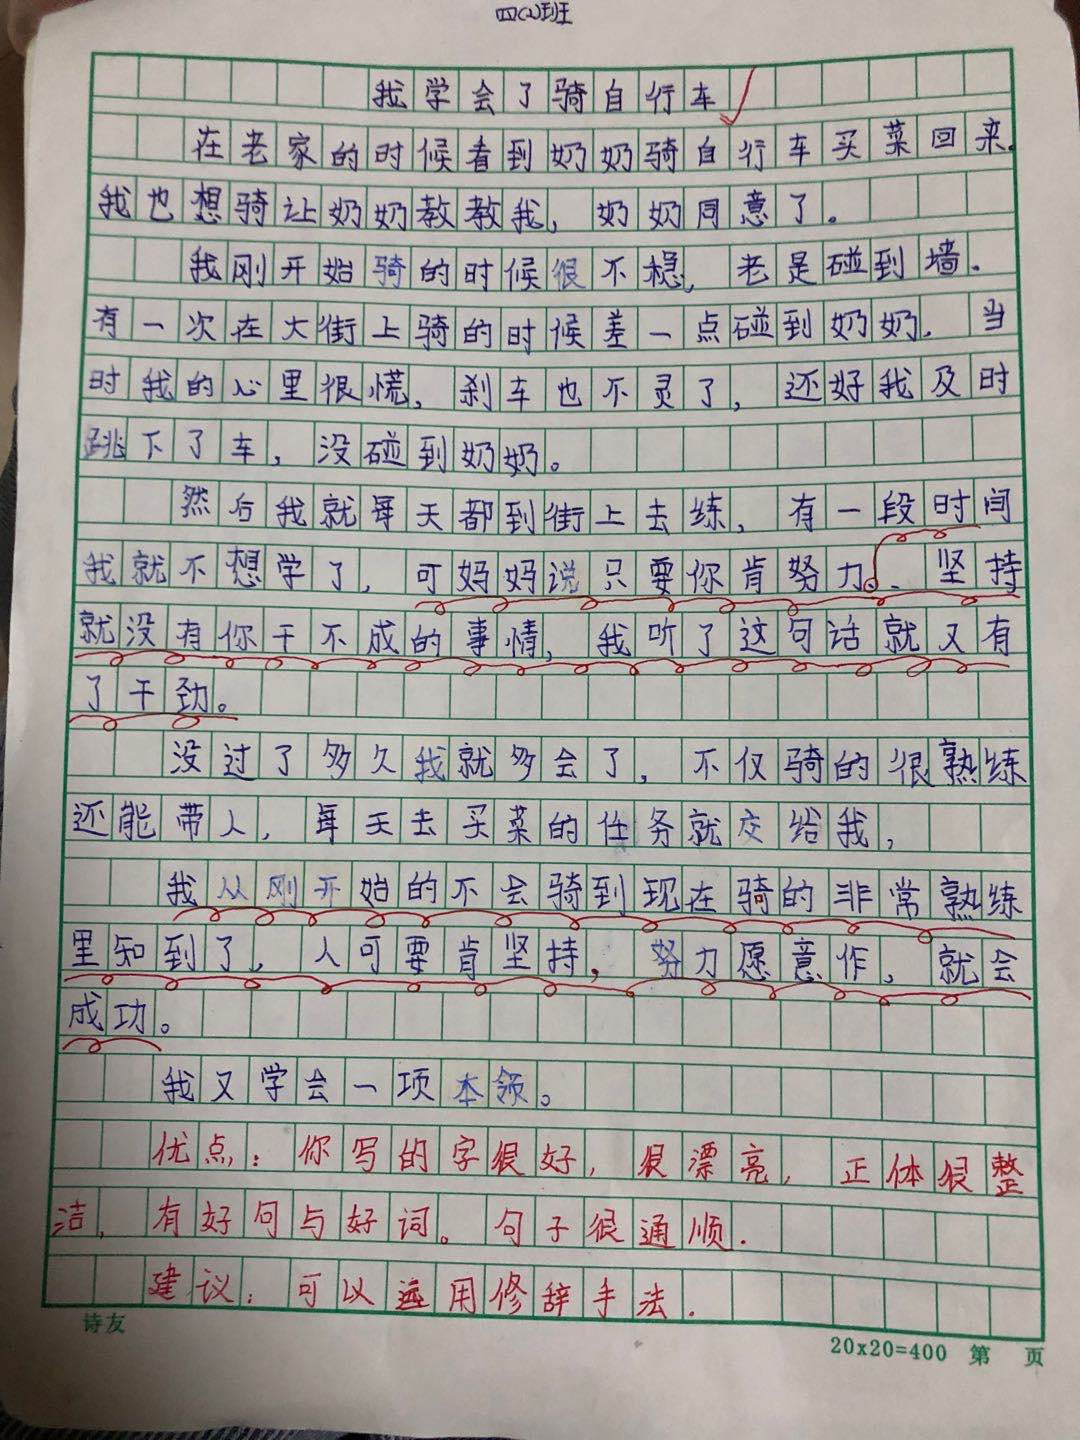 四(2)班
我学会了骑自行车
在老家的时候看到奶奶骑自行车买菜回来.
我也想骑让奶奶教教我，奶奶同意了。
我刚开始骑的时候很不稳，老是碰到墙.
有一次在大街上骑的时候差一点碰到奶奶.当
时我的心里很慌，刹车也不灵了，还好我及时
跳下了车，没碰到奶奶。
然后我就每天都到街上去练，有一段时间
我就不想学了，可妈妈说只要你肯努力、坚持
就没有你干不成的事情，我听了这句话就又有
了干劲。
没过了多久我就多会了，不仅骑的很熟练
还能带人，每天去买菜的任务就交给我，
我从刚开始的不会骑到现在骑的非常熟练
里知到了，人可要肯坚持，努力愿意作，就会
成功。
我又学会一项本领。
优点：你写的字很好，很漂亮，正体很整
洁，有好句与好词。句子很通顺.
建议：可以运用修辞手法.
诗友
20x20=400 第 页